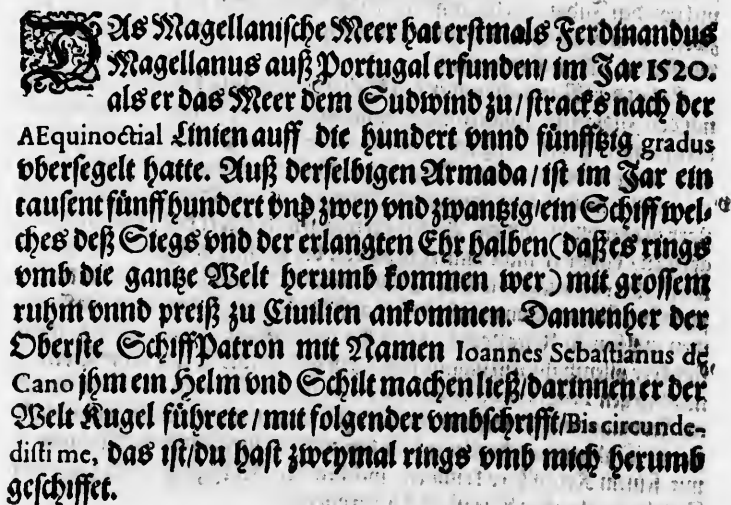 DAs Magellanische Meer hat erstmals Ferdinandus
Magellanus auß Portugal erfunden/ im Jar 1520.
als er das Meer dem Sudwind zu/ stracks nach der
AEquinoctial Linien auff die hundert vnnd fünfftzig gradus
vbersegelt hatte. Auß derselbigen Armada/ ist im Jar ein
tausent fünff hundert vnd zwey vnd zwantzig/ ein Schiff wel-
ches deß Siegs vnd der erlangten Ehr halben (daß es rings
vmb die gantze Welt herumb kommen wer) mit grossem
ruhm vnnd preiß zu Ciuilien ankommen. Dannenher der
Oberste SchiffPatron mit Namen Ioannes Sebastianus de
Cano jhm ein Helm vnd Schilt machen ließ/ darinnen er der
Welt Kugel führete/ mit folgender vmbschrifft/ Bis circunde-
disti me, das ist/ du hast zweymal rings vmb mich herumb
geschiffet.